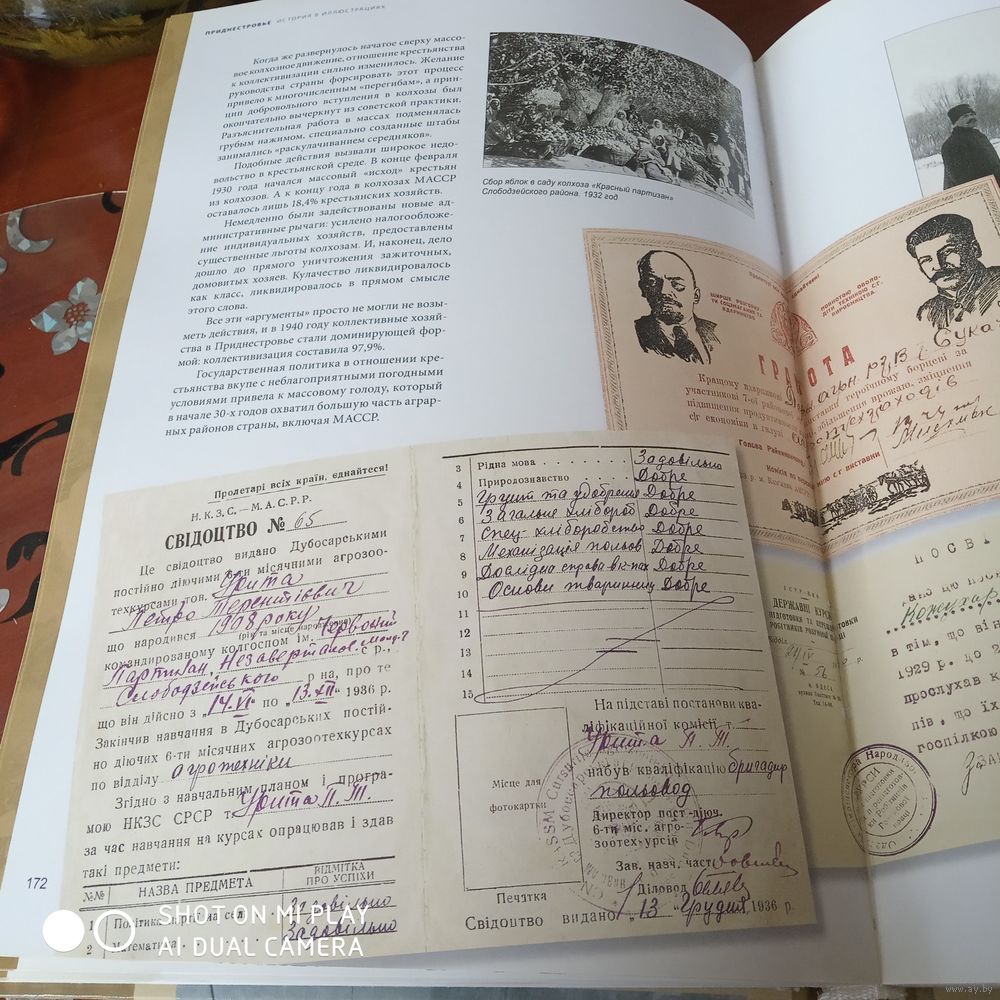 ПРИДНЕСТРОВЬЕ ИСТОРИЯ В ИЛЛЮСТРАЦИЯХ
Когда же развернулось начатое сверху массо-
вое колхозное движение, отношение крестьянства
к коллективизации сильно изменилось. Желание
руководства страны форсировать этот процесс
привело к многочисленным «перегибам», а прин-
цип добровольного вступления в колхозы был
окончательно вычеркнут из советской практики.
Разъяснительная работа в массах подменялась
грубым нажимом, специально созданные штабы
занимались «раскулачиванием середняков».
Подобные действия вызвали широкое недо-
вольство в крестьянской среде. В конце февраля
1930 года начался массовый «исход» крестьян
из колхозов. А к концу года в колхозах МАССР
оставалось лишь 18,4% крестьянских хозяйств.
Немедленно были задействованы новые ад-
министративные рычаги: усилено налогообложе-
ние индивидуальных хозяйств, предоставлены
существенные льготы колхозам. И, наконец, дело
дошло до прямого уничтожения зажиточных,
домовитых хозяев. Кулачество ликвидировалось
как класс, ликвидировалось в прямом смысле
этого слова.
Все эти «аргументы» просто не могли не возы-
меть действия, и в 1940 году коллективные хозяй-
ства в Приднестровье стали доминирующей фор-
мой: коллективизация составила 97,9%.
Государственная политика в отношении кре-
стьянства вкупе с неблагоприятными погодными
условиями привела к массовому голоду, который
в начале 30-х годов охватил большую часть аграр-
ных районов страны, включая МАССР.
Сбор яблок в саду колхоза «Красный партизан»
Слободзейского района. 1932 год
ШИРШЕ РОЗГОРНІ-
ТИ СОЦЗМАГАННЯ ТА
УДАРНИЦТВО
ПОВНІСТЮ ОВОЛО-
ДІТИ ТЕХНІКОЮ СГ.
ВИРОБНИЦТВА.
ГРАМОТА
Кращому ударникові
участникові 7-ої районової
виставки героїчному борцеві за
підвищення продукції
збільшення врожаю, зміцнення
с/г економіки в галузі
Голова Райвиконкому
Комісія по
СГ ВИСТАВКИ
Пролетарі всіх країн, єднайтеся!
Н.К.З.С.—М.А.С.Р.Р.
СВІДОЦТВО № 65
Це свідоцтво видано Дубосарськими
постійно діючими 6-ти місячними агрозоо-
техкурсами тов. Урита
Петро Терентієвич
що народився 1918 року
(рік та місце народження)
командированому колгоспом ім. Червоний
Партизан, Незавертайлов. с. р.,
Слободзейського р на, про те
що він дійсно з „14.VI" по „13.XII" 1936 р.
Закінчив навчання в Дубосарських постій-
но діючих 6-ти місячних агрозоотехкурсах
по відділу агротехніки
Згідно з навчальним планом і програ-
мою НКЗС СРСР т. Урита П. Т.
за час навчання на курсах опрацював і здав
такі предмети:
№№ НАЗВА ПРЕДМЕТА ВІДМІТКА ПРО УСПІХИ
1 Політика партії на селі Задовільно
2 Математика Задовільно
3 Рідна мова Задовільно
4 Природознавство Добре
5 Грунт та удобрення Добре
6 Загальне хлібороб Добре
7 Спец. хліборобство Добре
8 Механізація польов Добре
9 Дослідна справа в к-пах Добре
10 Основи тваринниц Добре
11
12
13
14
15
Місце для
фотокартки
На підставі постанови ква-
ліфікаційної комісії т.
Урита П. Т.
набув кваліфікацію бригадир
польовод
Директор пост-діюч.
6-ти міс. агро-
зоотех-курсій
Зав. навч. част
Діловод
Печатка
Свідоцтво видано „13" Грудня 1936 р.
ПОСВІ
ДЕРЖАВНІ КУРСИ
24/IV
№ 56
в тім, що він
1929 р. до 2
прослухав к
пів, що їх
госпілкою
172
SHOT ON MI PLAY
AI DUAL CAMERA
www.ay.by